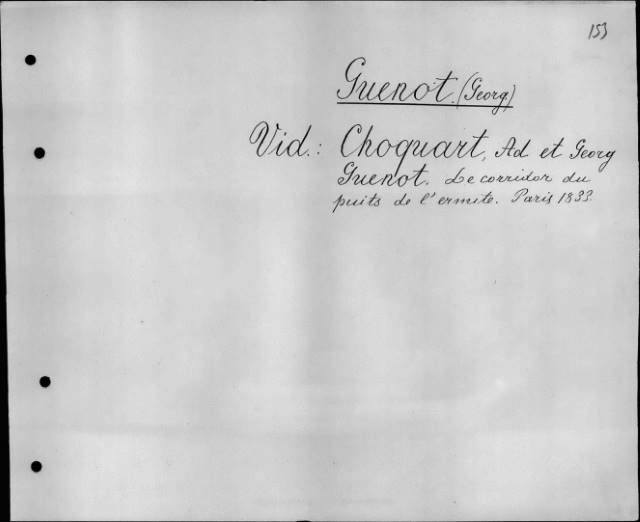 153
Guenot. (Georg.)
Vid.: Choquart, Ad et Georg
Guenot. Le corridor du
puits de l'ermite. Paris 1833.